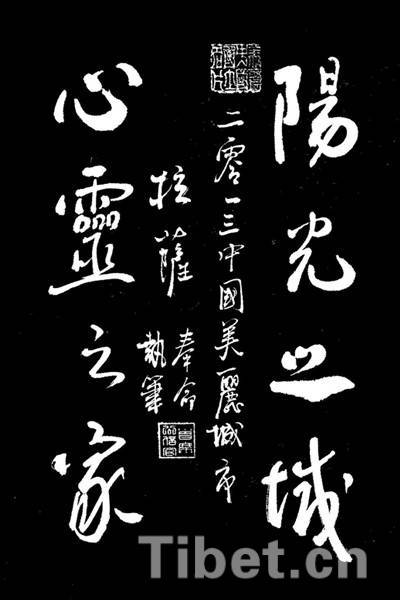 陽光之城
二零一三中國美麗城市
拉薩
奉命
執筆
心靈之家
Tibet.cn